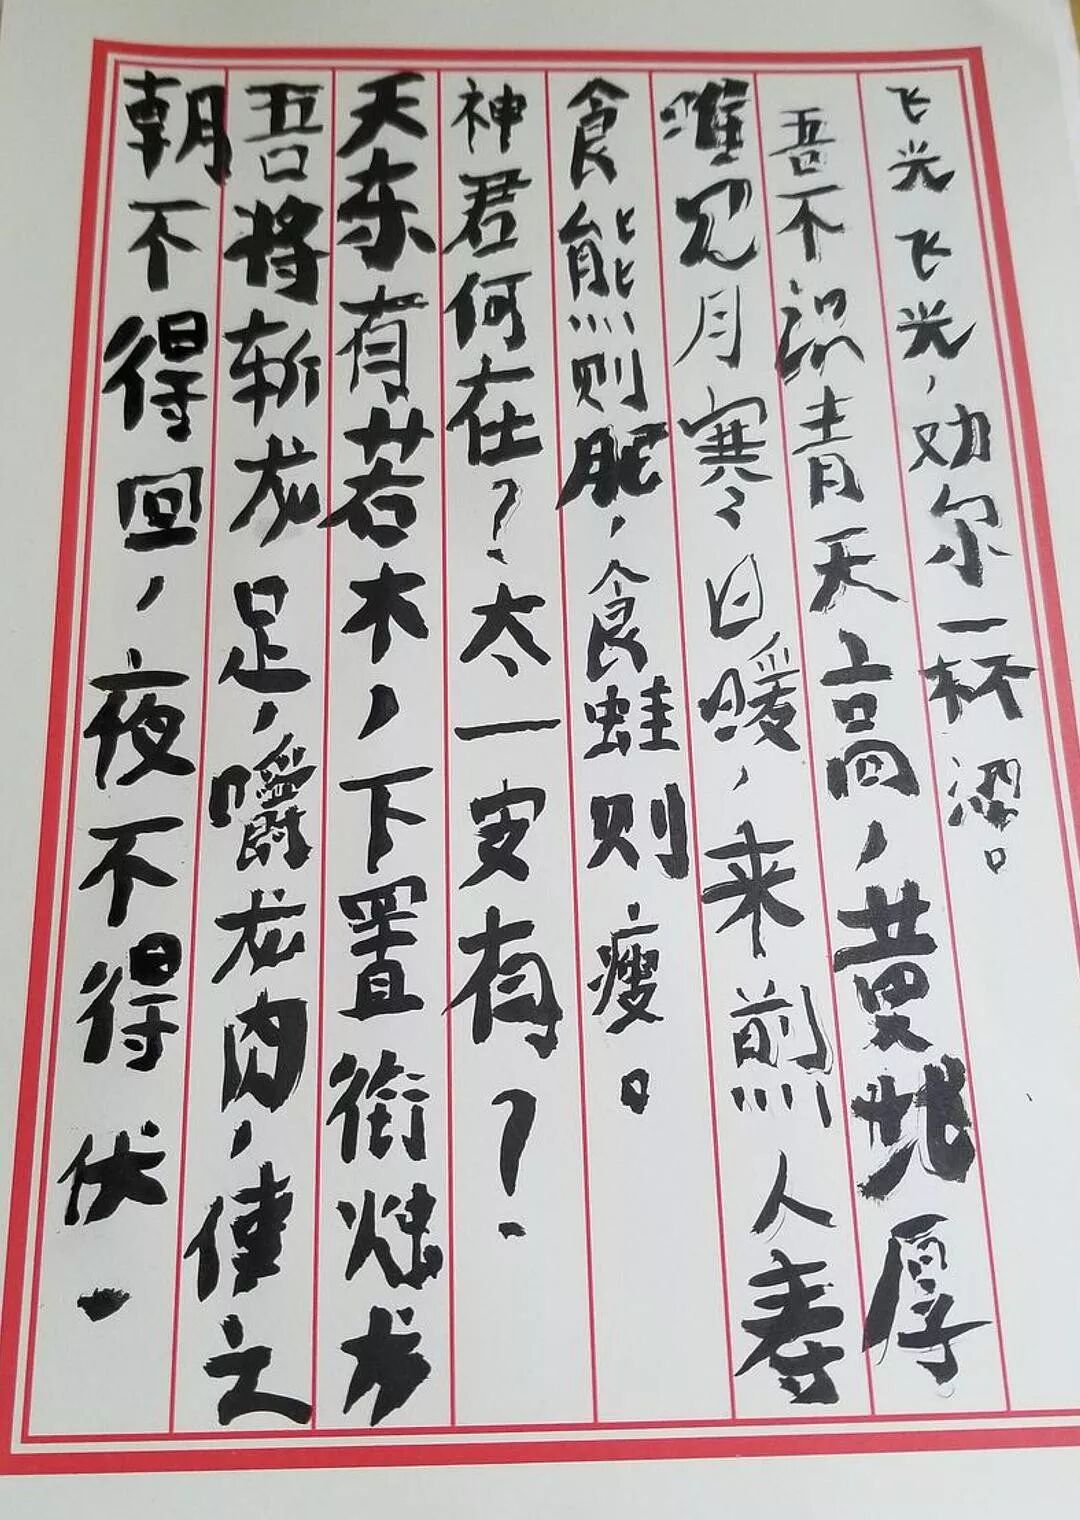 飞光飞光，劝尔一杯。
吾不识青天高，黄地厚
唯见月寒日暖，来煎人寿
食熊则肥，食蛙则瘦。
神君何在？太一安有？
天东有若木，下置衔烛龙
吾将斩龙足，嚼龙肉，使之
朝不得回，夜不得伏。